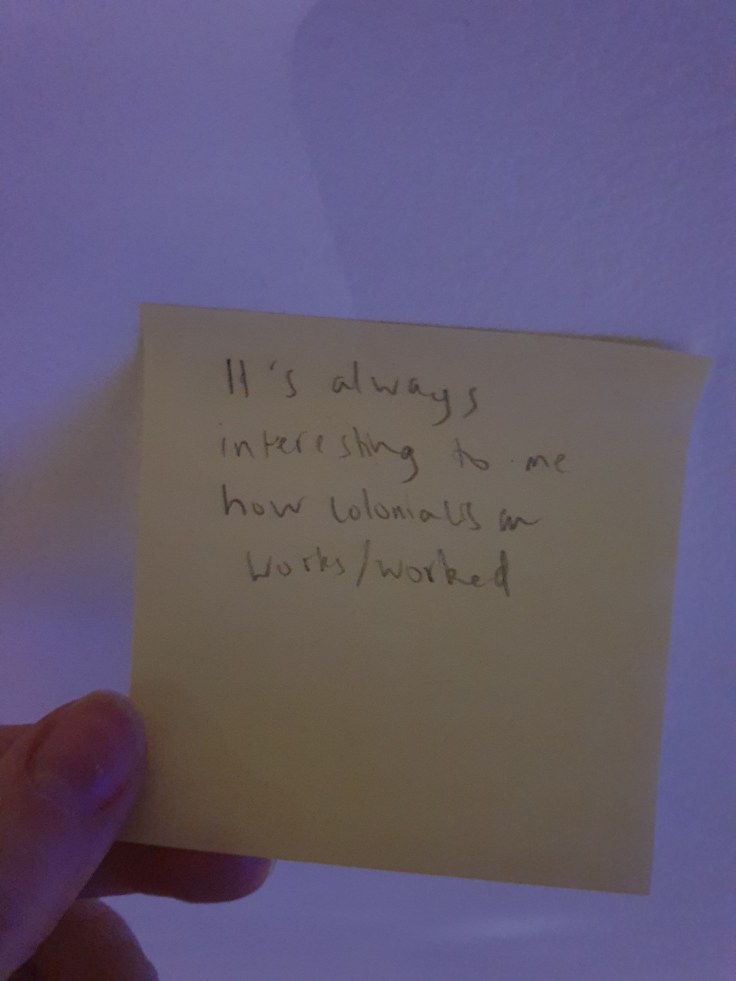 It's always
interesting to me
how colonialism
works/worked